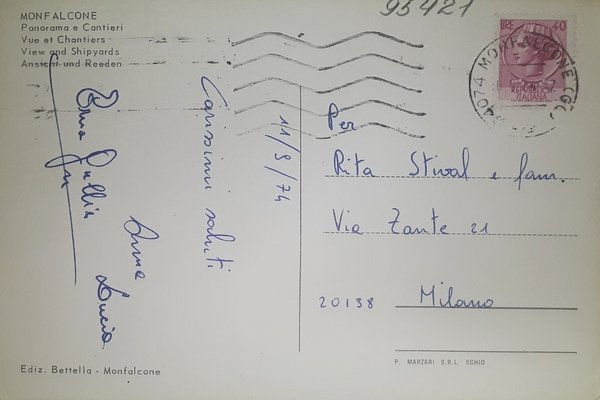 95421
MONFALCONE
Panorama e Cantieri
Vue et Chantiers
View and Shipyards
Ansicht und Reeden
LIRE 40
REPUBBLICA
ITALIANA
34074 MONFALCONE (GO)
11/9/74
Carissimi saluti
Anna
Lucio
Per
Rita Stival e fam.
Via Zante 21
20138 Milano
Ediz. Bettella - Monfalcone
P. MARZARI S.R.L. SCHIO